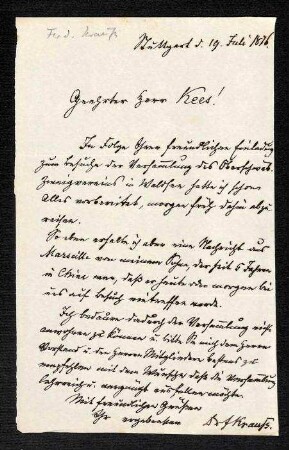 Ferd. Krauß
Stuttgart d. 19. Juli 1876.
Geehrter Herr Kees!
In Folge Ihrer freundlichen Einladung
zum Besuche der Versammlung des Oberschwäb.
Zweigvereins in Waldsee hatte ich schon
Alles vorbereitet, morgen früh dahin abzu
reisen.
So eben erhalte ich aber eine Nachricht aus
Marseille von meinem Sohn, der seit 5 Jahren
in China war, daß er heute oder morgen bei
uns auf Besuch eintreffen werde.
Ich bedaure dadurch der Versammlung nicht
anwohnen zu können u. bitte Sie mich dem Herrn
Vorstand u. den Herren Mitgliedern bestens zu
empfehlen mit dem Wunsche daß die Versammlung
lehrreich u. vergnügt ausfallen möge.
Mit freundlichen Grüßen
Ihr ergebenster Dr. F. Krauß.